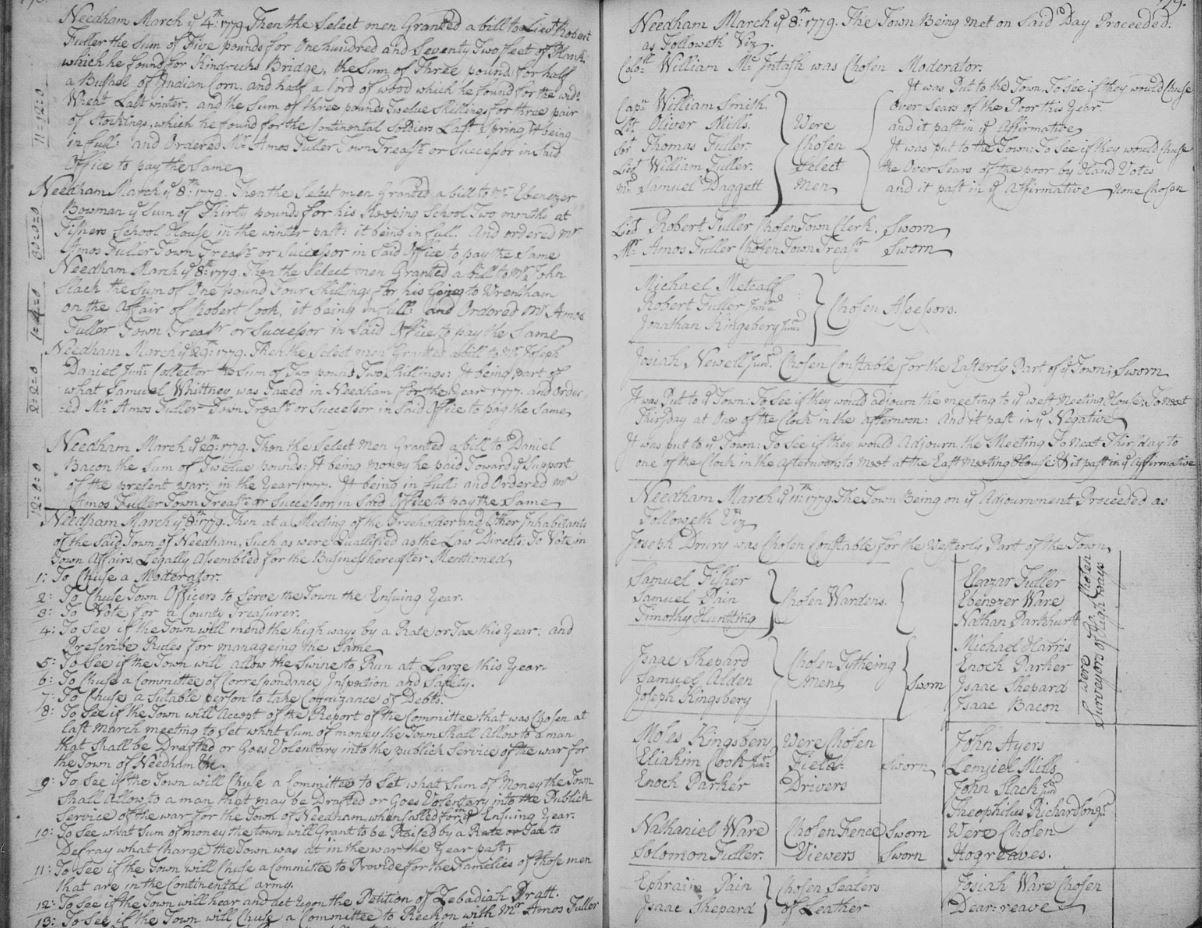 Needham March ye 4th: 1779. Then the Select men Granted a bill to Lieut Robert
Fuller the Sum of Five pounds for One hundred and Seventy Two feet of Plank
which he found for Kindrecks Bridge, the Sum of Three pounds for half
a Bushel of Indian Corn, and half a lord of wood which he found for the widw
Wheat Last winter, and the Sum of three pounds Twelve Shillings for three pair
of Stockings, which he found for the Continental Soldiers Last Spring It being
in full: and Ordered Mr Amos Fuller Town Treasr or Successor in Said
Office to pay the Same
11=12=0
Needham March ye 8th: 1779. Then the Select men Granted a bill to Mr Ebenezer
Bowman ye Sum of Thirty pounds for his Keeping School Two months at
Fishers School House in the winter past: it being in full. And ordered Mr
Amos Fuller Town Treasr or Successor in Said Office to pay the Same
30=0=0
Needham March ye 8th: 1779. Then the Select men Granted a bill to Mr John
Slack the Sum of One pound Four Shillings for his Going to Wrentham
on the Affair of Robert Cook, it being in full: and Ordered Mr Amos
Fuller Town Treasr or Successor in Said Office to pay the Same
1=4=0
Needham March ye 9th: 1779. Then the Select men Granted a bill to Mr Joseph
Daniel Junr Collector the Sum of Two pounds Two Shillings: It being part of
what Samuel Whittney was Taxed in Needham for the year 1777. and Order
=ed Mr Amos Fuller Town Treasr or Successor in Said Office to pay the Same
2=2=0
Needham March ye 9: 1779. Then the Select men Granted a bill to Daniel
Bacon the Sum of Twelve pounds: It being money he paid Toward ye Support
of the present war, in the year 1777. It being in full: and Ordered Mr
Amos Fuller Town Treasr or Successor, in Said Office to pay the Same
12=0=0
Needham March ye 8th: 1779. Then at a Meeting of the Freeholder and Other Inhabitants
of the Said Town of Needham, Such as were Qualified as the Law Directs To Vote in
Town Affairs, Legally Assembled for the Business hereafter Mentioned
1: To Chuse a Moderator.
2: To Chuse Town Officers to Serve the Town the Ensuing Year.
3: To Vote for a County Treasurer.
4: To See if the Town will mend the high ways by a Rate or Tax this Year: and
Prescribe Rules for manageing the Same
5: To See if the Town will allow the Swine to Run at Large this Year
6: To Chuse a Committee of Correspondance Inspection and Safety.
7: To Chuse a Suitable person to take Cognizance of Debts.
8: To See if the Town will Accept of the Report of the Committee that was Chosen at
last March meeting to Set what Sum of money the Town Shall Allow to a man
that Shall be Drafted or Goes Volentary into the publick Service of the war for
the Town of Needham
9: To See if the Town will Chuse a Committee to Set what Sum of Money the Town
Shall Allow to a man that may be Drafted or Goes Volentery into the Publick
Service of the war for the Town of Needham, when called for ye Ensuing Year.
10: To See what Sum of money the town will Grant to be Raised by a Rate or Tax to
Defray what Charge the Town was at in the war the Year past,
11: To See if the Town will Chuse a Committee to Provide for the Families of those men
that are in the Continental army.
12: To See if the Town will hear and Act upon the Petition of Zebadiah Pratt.
13: To See if the Town will Chuse a Committee to Reckon with Mr Amos Fuller
Needham March ye 8th: 1779. The Town Being met on Said Day Proceeded.
as Followeth Viz.
Colo. William McIntosh was Chosen Moderator.
Capt William Smith.
Lt Oliver Mills.
Sr Thomas Fuller.
Lt William Fuller.
Mr Samuel Daggett
Were
Chosen
Select
Men
It was Put to the Town To See if they would Chuse
Over Sears of the Poor this Year
and it past in ye Affirmative
It was put to the Town: To See if they would Chuse
the Over Sears of the poor by Hand Votes
and it past in ye Affirmative None Chosen
Lieut Robert Fuller Chosen Town Clerk. Sworn
Mr Amos Fuller Chosen Town Treasr Sworn
Michael Metcalf
Robert Fuller Junr
Jonathan Kingsbery Junr
Chosen Assessors.
Josiah Newell Jur. Chosen Constable for the Easterly Part of ye Town; Sworn
It was Put to ye Town: To See if they would adjourn the meeting to ye west Meeting House: To meet
This Day at One of the Clock in the afternoon: And it past in ye Negative
It was put to ye Town: To See if they would Adjourn the Meeting To Next Thirsday to
one of the Clock in the Afternoon to meet at the East Meeting House: & it past in ye Affirmative
Needham March ye 11th: 1779. The Town Being on ye Adjournment Proceeded as
Followeth Viz
Joseph Drury was Chosen Constable for the Westerly Part of the Town
Samuel Fisher
Samuel Pain
Timothy Huntting
Chosen Wardens.
Isaac Shepard
Samuel Alden
Joseph Kingsbery
Chosen Tytheing
Men
Sworn
Eleazar Fuller
Ebenezer Ware
Nathan Parkhurst
Michael Harris
Enoch Parker
Isaac Shepard
Isaac Bacon
were Chosen
Surveyors of high ways
Moses Kingsbery
Eliakim Cook Junr
Enoch Parker
Were Chosen
Field=
Drivers
Sworn
Nathaniel Ware
Solomon Fuller.
Chosen Fence
Viewers
Sworn
Sworn
John Ayers
Lemuel Mills
John Slack Jur
Theophilus Richardson Jr
Were Chosen
Hogreaves.
Ephraim Pain
Isaac Shepard
Chosen Sealers
of Leather
Josiah Ware Chosen
Dear=reave